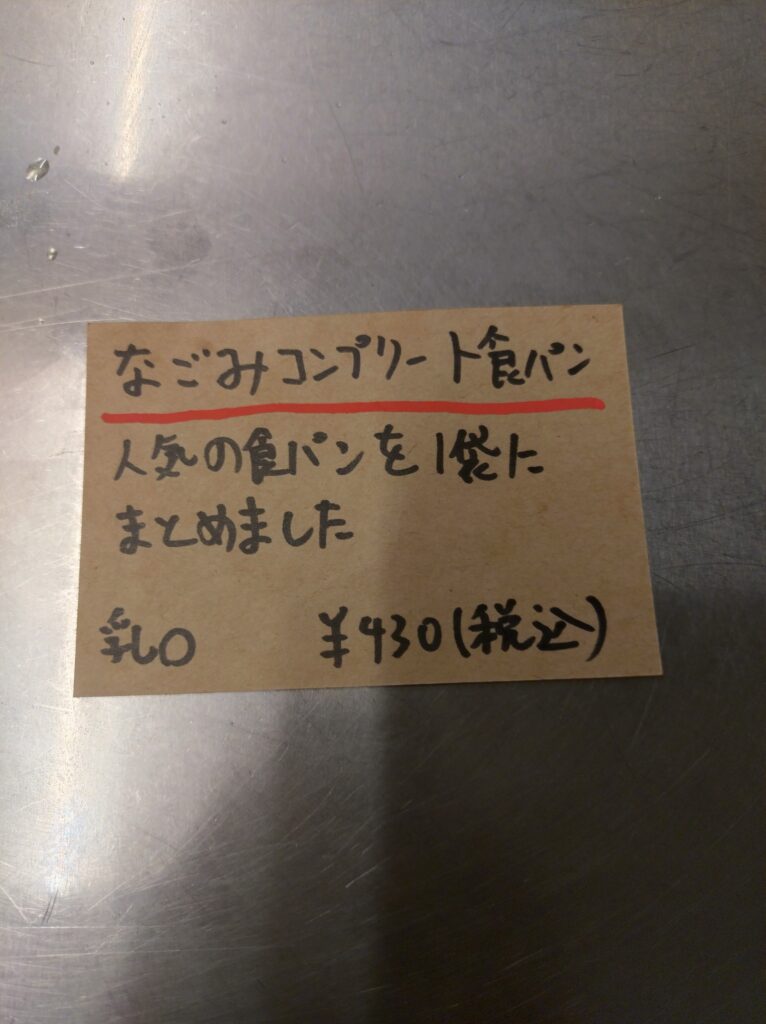 なごみコンプリート食パン
人気の食パンを1袋に
まとめました
乳○ ¥430(税込)